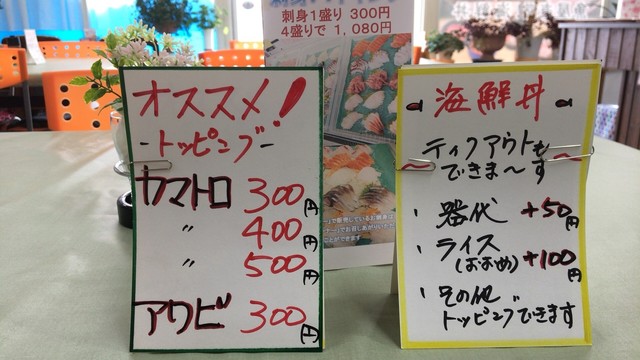 刺身1盛り 300円
4盛りで 1,080円
オススメ!
-トッピング-
カマトロ 300円
〃 400円
〃 500円
アワビ 300円
海鮮丼
ティクアウトも
できま〜す
・器代 +50円
・ライス
(おおめ)+100円
・その他
トッピングできます